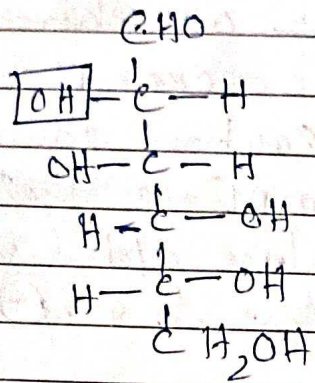 CHO
OH-C-H
OH-C-H
H-C-OH
H-C-OH
CH₂OH